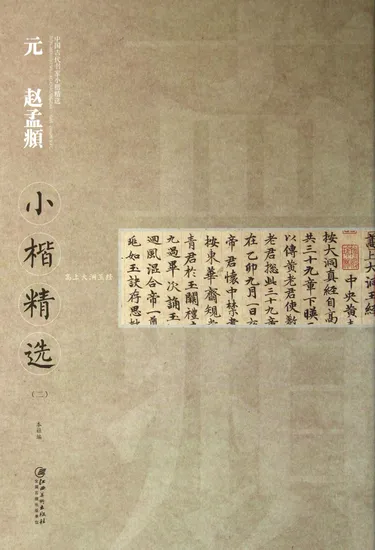 中国古代书家小楷精选
元 赵孟頫
小楷精选
(二)
高上大洞玉经
李放 编
江西美术出版社
全国百佳出版单位
高上大洞玉經
中央黃
按大洞真經自高
共三十九章下暎
以傳黄老君使數
老君总此三十九章
在乙卯九月一日
帝君懷中禁書
按東華齋規
青君於玉闕禮
九過畢次誦玉
迴風混合帝一
如玉訣存思